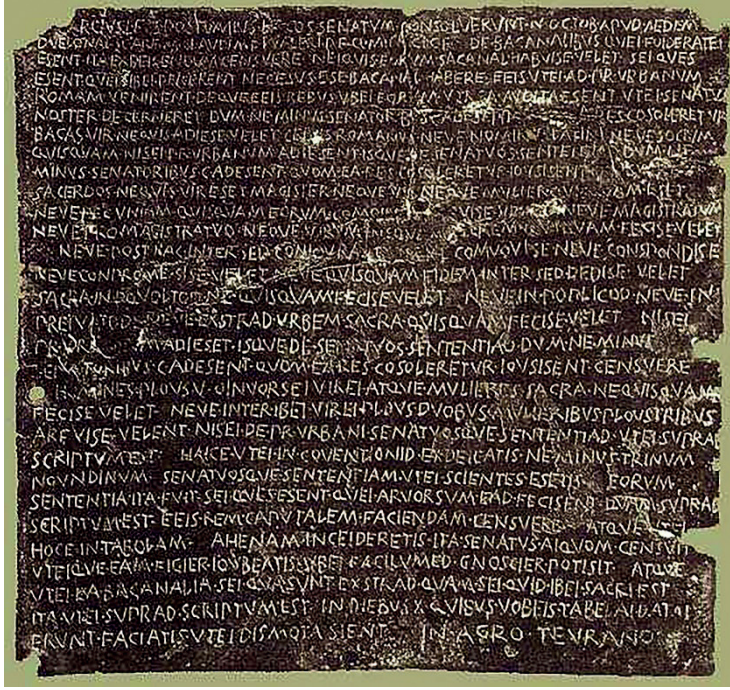 COS SENATVM CONSOLVERVNT·N·OCTOB·APVD·AEDEM
DVELONAI·SC·ARF·M·CLAVDI·M·F DE·BACANALIBVS·QVEI·FOIDERATEI
ESENT·ITA·EXDEICENDVM·CENSVERE·NEIQVIS·EORVM·BACANAL·HABVISE·VELET·SEI·QVES
ESENT·QVEI·SIBEI·DEICERENT·NECESVS·ESE·BACANAL·HABERE·EEIS·VTEI·AD·PR·VRBANVM
ROMAM·VENIRENT·DEQVE·EEIS·REBVS·VBEI·EORVM·AVDITA·ESENT·VTEI·SENATVS
NOSTER·DECERNERET·DVM·NE·MINVS·SENATORBVS·C·ADESENT RES·COSOLERETVR
BACAS·VIR·NEQVIS·ADIESE·VELET·CEIVIS·ROMANVS·NEVE·NOMINVS·LATINI·NEVE·SOCIVM
QVISQVAM·NISEI·PR·VRBANVM·ADIESENT·ISQVE SENATVOS·SENTENTIAD·DVM·NE
MINVS·SENATORIBVS·C·ADESENT·QVOM·EA·RES·COSOLERETVR·IOVSISENT
SACERDOS·NEQVIS·VIR·ESET·MAGISTER·NEQVE·VIR·NEQVE·MVLIER·QVISQVAM·ESET
NEVE·PECVNIAM·QVISQVAM·EORVM·COMOINEM VELET·NEVE·MAGISTRATVM
NEVE·PRO·MAGISTRATVO·NEQVE·VIRVM·NEQVE QVIQVAM·FECISE·VELET
NEVE·POST·HAC·INTER·SED·CONIOVRA COMVOVISE·NEVE·CONSPONDISE
NEVE·CONPROMESISE·VELET·NEVE·QVISQVAM·FIDEM·INTER·SED·DEDISE·VELET
SACRA·IN·OQVOLTOD·NE·QVISQVAM·FECISE·VELET NEVE·IN·POPLICOD·NEVE·IN
PREIVATOD·NEVE·EXSTRAD·VRBEM·SACRA·QVISQVAM·FECISE·VELET NISEI
PR·VRBANVM·ADIESET·ISQVE·DE·SENATVOS·SENTENTIAD·DVM·NE·MINVS
SENATORIBVS·C·ADESENT·QVOM·EA·RES·COSOLERETVR·IOVSISENT·CENSVERE
HOMINES·PLOVS·V·OINVORSEI·VIREI·ATQVE·MVLIERES·SACRA·NE·QVISQVAM
FECISE·VELET NEVE·INTER·IBEI·VIREI·PLOVS·DVOBVS·MVLIERIBVS·PLOVS·TRIBVS
ARFVISE·VELENT·NISEI·DE·PR·VRBANI·SENATVOSQVE·SENTENTIAD·VTEI·SVPRAD
SCRIPTVM·EST HAICE·VTEI·IN·COVENTIONID·EXDEICATIS·NE·MINVS·TRINVM
NOVNDINVM SENATVOSQVE·SENTENTIAM·VTEI·SCIENTES·ESETIS EORVM
SENTENTIA·ITA·FVIT·SEI·QVES·ESENT·QVEI·ARVORSVM·EAD·FECISENT·QVAM·SVPRAD
SCRIPTVM·EST·EEIS·REM·CAPVTALEM·FACIENDAM·CENSVERE ATQVE·VTEI
HOCE·IN·TABOLAM· AHENAM·INCEIDERETIS·ITA·SENATVS·AIQVOM·CENSVIT
VTEIQVE·EAM·FIGIER·IOVBEATIS·VBEI·FACILVMED·GNOSCIER·POTISIT ATQVE
VTEI·EA·BACANALIA·SEI·QVA·SVNT·EXSTRAD·QVAM·SEI·QVID·IBEI·SACRI·EST
ITA·VTEI·SVPRAD·SCRIPTVM·EST IN·DIEBVS·X·QVIBVS·VOBEIS·TABELAI·DATAI
ERVNT·FACIATIS·VTEI·DISMOTA·SIENT IN·AGRO·TEVRANO